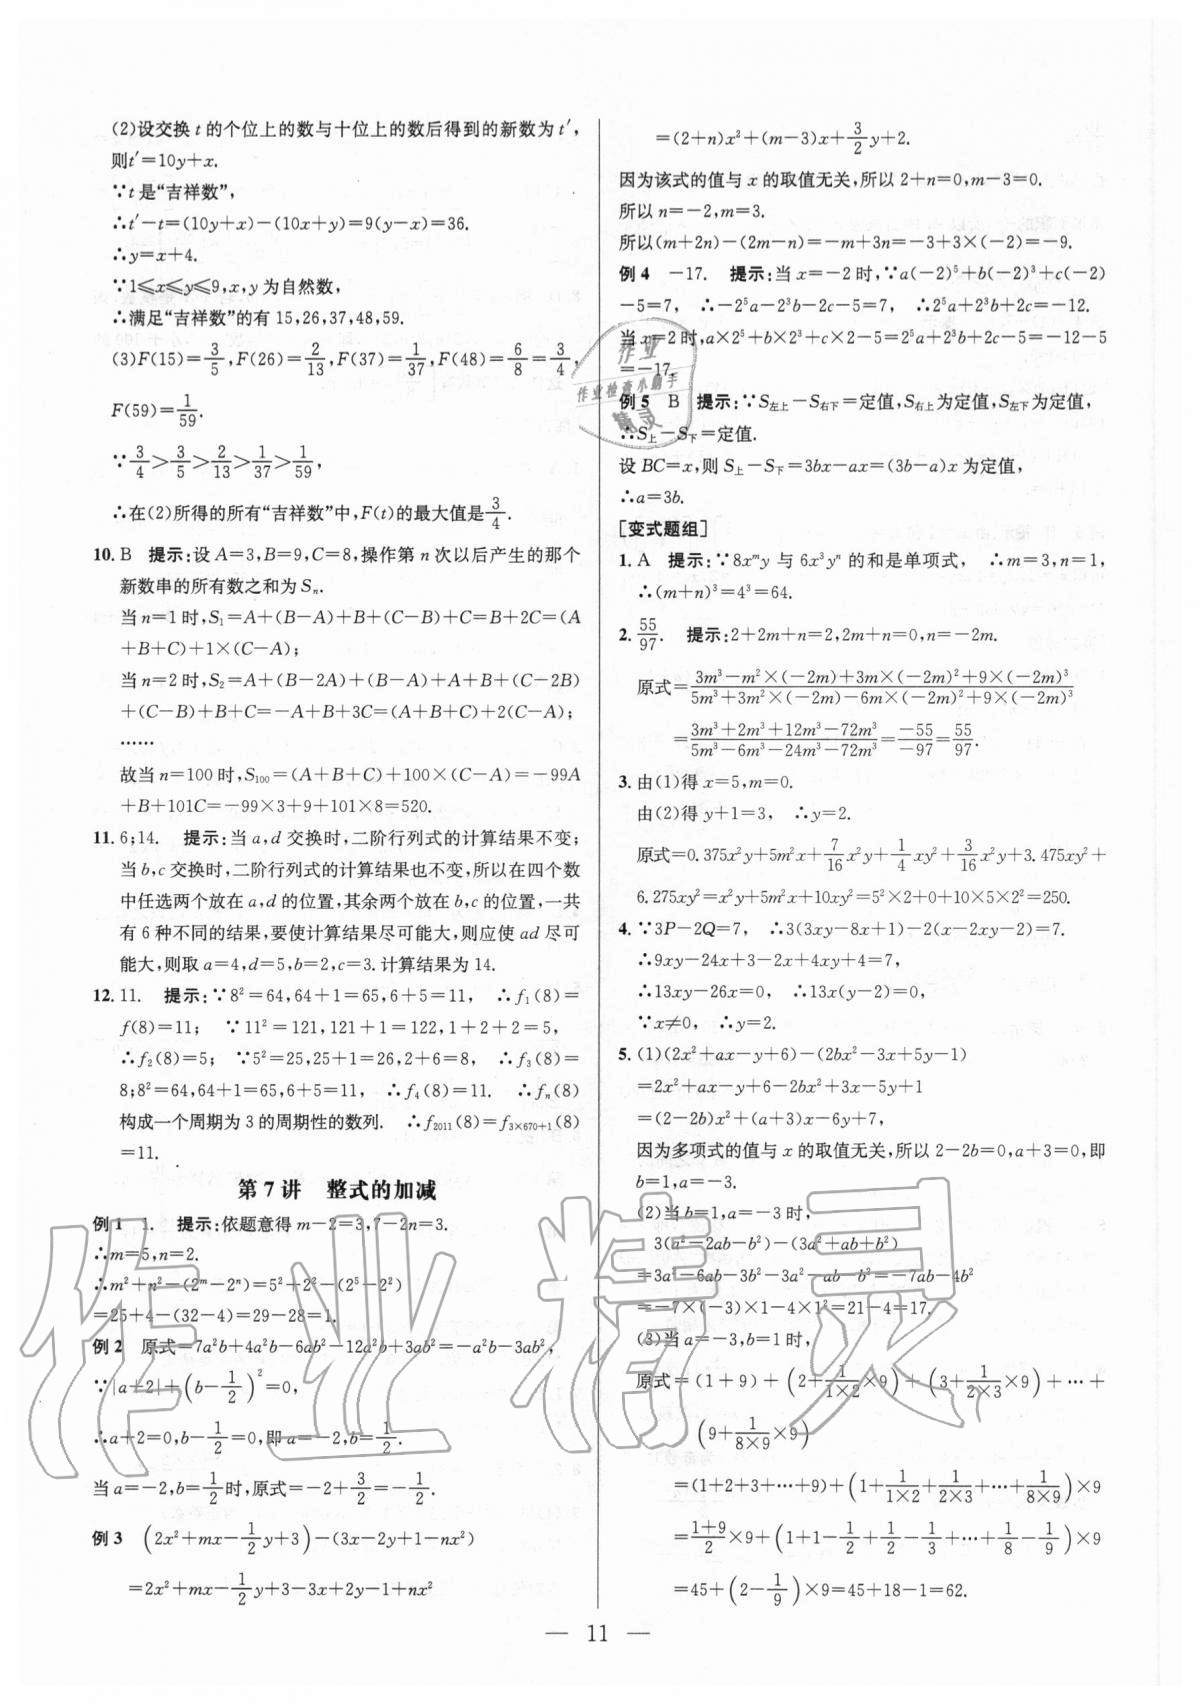 (2)设交换 t 的个位上的数与十位上的数后得到的新数为 t′,
则t′=10y+x.
∵t 是“吉祥数”,
∴t′−t=(10y+x)−(10x+y)=9(y−x)=36.
∴y=x+4.
∵1⩽x⩽y⩽9,x,y 为自然数,
∴满足“吉祥数”的有 15,26,37,48,59.
(3)F(15)=3/5,F(26)=2/13,F(37)=1/37,F(48)=6/8=3/4,
F(59)=1/59.
∵3/4>3/5>2/13>1/37>1/59,
∴在(2)所得的所有“吉祥数”中,F(t)的最大值是3/4.
10. B 提示:设 A=3,B=9,C=8,操作第 n 次以后产生的那个
新数串的所有数之和为 Sₙ.
当 n=1 时,S₁=A+(B−A)+B+(C−B)+C=B+2C=(A
+B+C)+1×(C−A);
当 n=2 时,S₂=A+(B−2A)+(B−A)+A+B+(C−2B)
+(C−B)+B+C=−A+B+3C=(A+B+C)+2(C−A);
……
故当 n=100 时,S₁₀₀=(A+B+C)+100×(C−A)=−99A
+B+101C=−99×3+9+101×8=520.
11. 6;14. 提示:当 a,d 交换时,二阶行列式的计算结果不变;
当 b,c 交换时,二阶行列式的计算结果也不变,所以在四个数
中任选两个放在 a,d 的位置,其余两个放在 b,c 的位置,一共
有 6 种不同的结果,要使计算结果尽可能大,则应使 ad 尽可
能大,则取 a=4,d=5,b=2,c=3.计算结果为 14.
12. 11. 提示:∵8²=64,64+1=65,6+5=11, ∴f₁(8)=
f(8)=11; ∵11²=121,121+1=122,1+2+2=5,
∴f₂(8)=5; ∵5²=25,25+1=26,2+6=8, ∴f₃(8)=
8;8²=64,64+1=65,6+5=11, ∴f₄(8)=11. ∴fₙ(8)
构成一个周期为 3 的周期性的数列. ∴f₂₀₁₁(8)=f₃ₓ₆₇₀₊₁(8)
=11.
第 7 讲 整式的加减
例1 1. 提示:依题意得 m−2=3,7−2n=3.
∴m=5,n=2.
∴m²+n²−(2ᵐ−2ⁿ)=5²+2²−(2⁵−2²)
=25+4−(32−4)=29−28=1.
例2 原式=7a²b+4a²b−6ab²−12a²b+3ab²=−a²b−3ab²,
∵|a+2|+(b−1/2)²=0,
∴a+2=0,b−1/2=0,即 a=−2,b=1/2.
当 a=−2,b=1/2时,原式=−2+3/2=−1/2.
例3 (2x²+mx−1/2y+3)−(3x−2y+1−nx²)
=2x²+mx−1/2y+3−3x+2y−1+nx²
=(2+n)x²+(m−3)x+3/2y+2.
因为该式的值与 x 的取值无关,所以 2+n=0,m−3=0.
所以 n=−2,m=3.
所以(m+2n)−(2m−n)=−m+3n=−3+3×(−2)=−9.
例4 −17. 提示:当 x=−2 时,∵a(−2)⁵+b(−2)³+c(−2)
−5=7, ∴−2⁵a−2³b−2c−5=7, ∴2⁵a+2³b+2c=−12.
当 x=2 时,a×2⁵+b×2³+c×2−5=2⁵a+2³b+2c−5=−12−5
=−17.
例5 B 提示:∵S左上−S右下=定值,S右上为定值,S左下为定值,
∴S上−S下=定值.
设 BC=x,则 S上−S下=3bx−ax=(3b−a)x 为定值,
∴a=3b.
[变式题组]
1. A 提示:∵8xᵐy 与 6x³yⁿ 的和是单项式, ∴m=3,n=1,
∴(m+n)³=4³=64.
2. 55/97. 提示:2+2m+n=2,2m+n=0,n=−2m.
原式=[3m³−m²×(−2m)+3m×(−2m)²+9×(−2m)³]/[5m³+3m²×(−2m)−6m×(−2m)²+9×(−2m)³]
=(3m³+2m³+12m³−72m³)/(5m³−6m³−24m³−72m³)=−55/−97=55/97.
3. 由(1)得 x=5,m=0.
由(2)得 y+1=3, ∴y=2.
原式=0.375x²y+5m²x+7/16x²y+1/4xy²+3/16x²y+3.475xy²+
6.275xy²=x²y+5m²x+10xy²=5²×2+0+10×5×2²=250.
4. ∵3P−2Q=7, ∴3(3xy−8x+1)−2(x−2xy−2)=7.
∴9xy−24x+3−2x+4xy+4=7,
∴13xy−26x=0, ∴13x(y−2)=0,
∵x≠0, ∴y=2.
5. (1)(2x²+ax−y+6)−(2bx²−3x+5y−1)
=2x²+ax−y+6−2bx²+3x−5y+1
=(2−2b)x²+(a+3)x−6y+7,
因为多项式的值与 x 的取值无关,所以 2−2b=0,a+3=0,即
b=1,a=−3.
(2)当 b=1,a=−3 时,
3(a²−2ab−b²)−(3a²+ab+b²)
=3a²−6ab−3b²−3a²−ab−b²=−7ab−4b²
=−7×(−3)×1−4×1²=21−4=17.
(3)当 a=−3,b=1 时,
原式=(1+9)+(2+1/1×2×9)+(3+1/2×3×9)+⋯+
(9+1/8×9×9)
=(1+2+3+⋯+9)+(1+1/1×2+1/2×3+⋯+1/8×9)×9
=1+9/2×9+(1+1−1/2+1/2−1/3+⋯+1/8−1/9)×9
=45+(2−1/9)×9=45+18−1=62.
— 11 —
作业
作业检查小助手
精灵
作业精灵